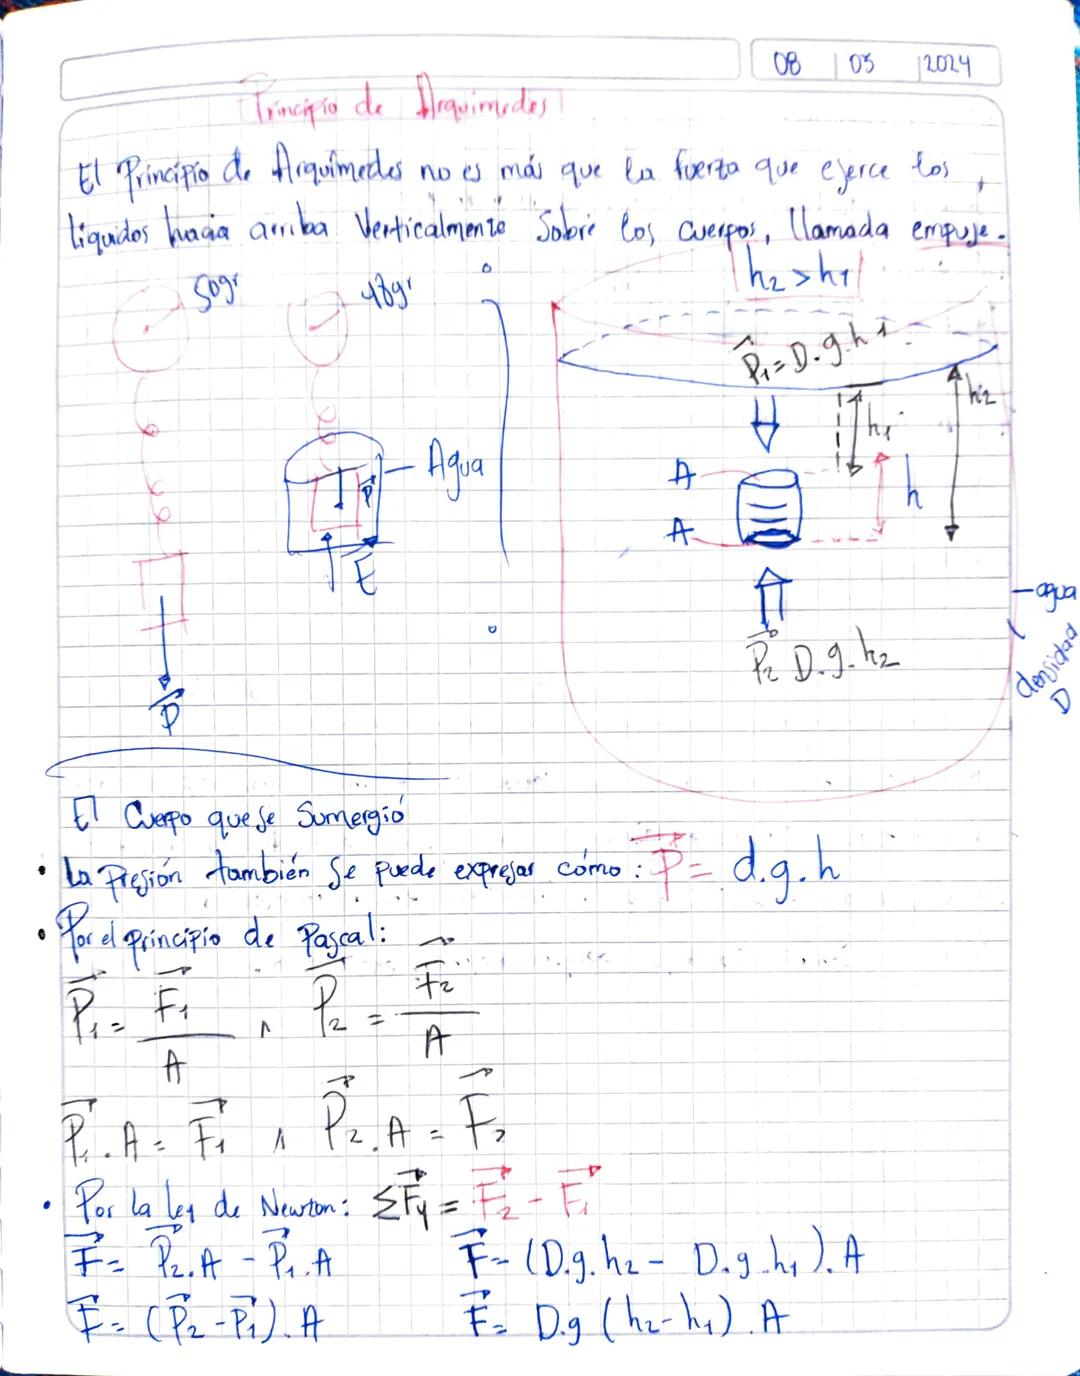 08 | 03 | 2024
Principio de Arquimedes
El Principio de Arquímedes no es más que la fuerza que ejerce los
liquidos hacia arriba Verticalmente Sobre los cuerpos, llamada empuje.
50gr
48gr
h2 > h1
P1 = D.g.h1
h2
h1
Agua
A
h
P
A
E
agua
P2 D.g.h2
densidad
D
P
El Cuerpo que se Sumergió
• La Presión también se puede expresar cómo: P = d.g.h
• Por el principio de Pascal:
P1 = F1/A ∧ P2 = F2/A
P1.A = F1 ∧ P2.A = F2
• Por la ley de Newton: ΣFy = F2 - F1
F = P2.A - P1.A F = (D.g.h2 - D.g.h1).A
F = (P2 - P1).A F = D.g (h2-h1).A